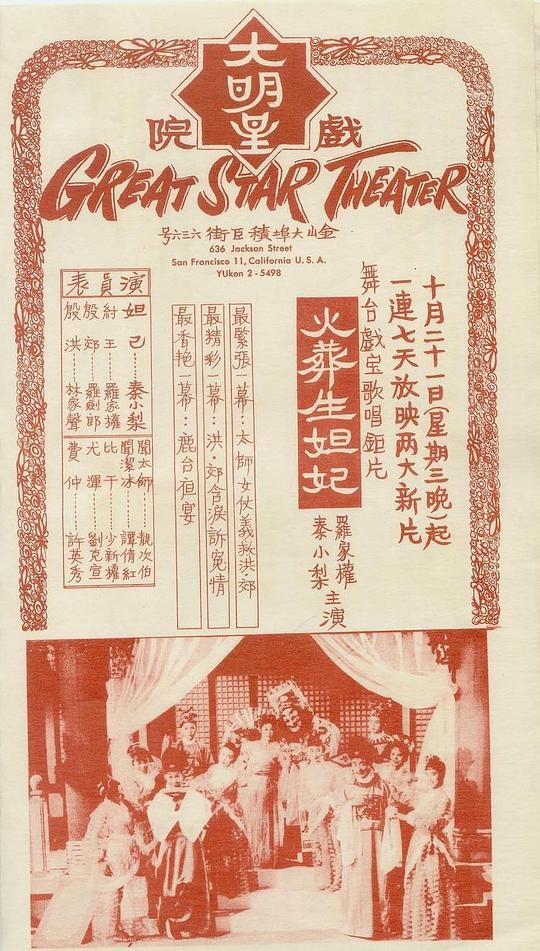 大明星
戲院
GREAT STAR THEATER
金山大埠積臣街六三六号
636 Jackson Street
San Francisco 11, California U. S. A.
YUkon 2-5498
十月二十一日(星期三晚)起
一連七天放映两大新片
舞台戲宝歌唱鉅片
火葬生妲妃
羅家權
秦小梨
主演
最緊張一幕：太師女仗義救洪、郊
最精彩一幕：洪、郊含淚訴冤情
最香艳一幕：鹿台夜宴
演員表
妲己……秦小梨
紂王……羅家權
殷郊……羅劍郎
殷洪……林家聲
聞太師……靚次伯
聞潔冰……譚倩紅
比干……少新權
尤渾……劉克宣
費仲……許英秀